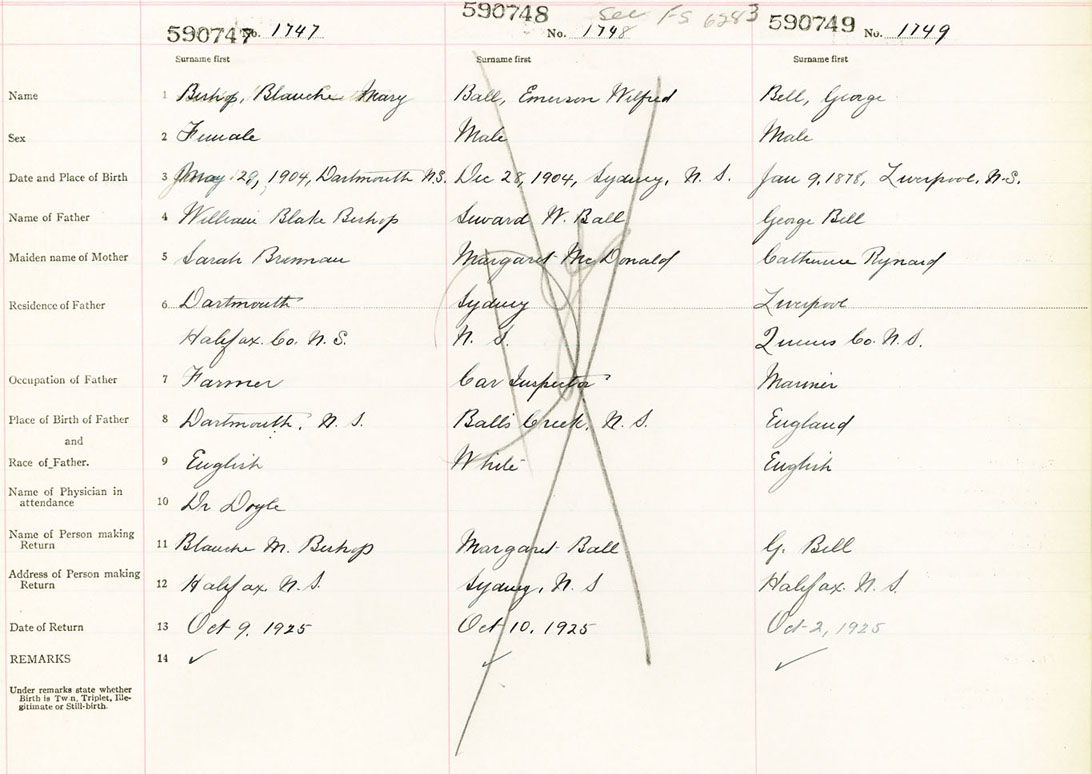 590747 No. 1747
590748 No. 1748 see F-S 6283
590749 No. 1749
Surname first Surname first Surname first
Name 1 Bishop, Blanche Mary Ball, Emerson Wilfred Bell, George
Sex 2 Female Male Male
Date and Place of Birth 3 May 28, 1904, Dartmouth N.S. Dec 28, 1904, Sydney, N. S. Jan 9, 1878, Liverpool, N.S.
Name of Father 4 William Blake Bishop Seward W. Ball George Bell
Maiden name of Mother 5 Sarah Brennan Margaret McDonald Catherine Rynard
Residence of Father 6 Dartmouth Sydney Liverpool
Halifax Co. N.S. N. S. Queens Co. N.S.
Occupation of Father 7 Farmer Car Inspector Mariner
Place of Birth of Father 8 Dartmouth, N. S. Balls Creek, N. S. England
and
Race of Father. 9 English White English
Name of Physician in
attendance 10 Dr Doyle
Name of Person making
Return 11 Blanche M. Bishop Margaret Ball G. Bell
Address of Person making
Return 12 Halifax N. S. Sydney, N. S Halifax N. S.
Date of Return 13 Oct 9, 1925 Oct 10, 1925 Oct 2, 1925
REMARKS 14 ✓ ✓ ✓
Under remarks state whether
Birth is Twin, Triplet, Ille-
gitimate or Still-birth.